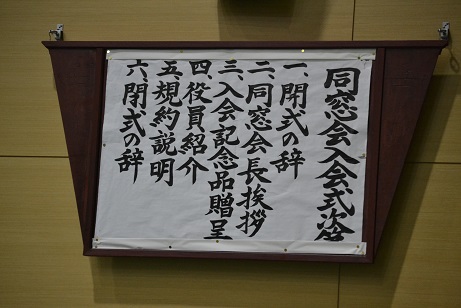 同窓会入会式次第
一、開式の辞
二、同窓会長挨拶
三、入会記念品贈呈
四、役員紹介
五、規約説明
六、閉式の辞